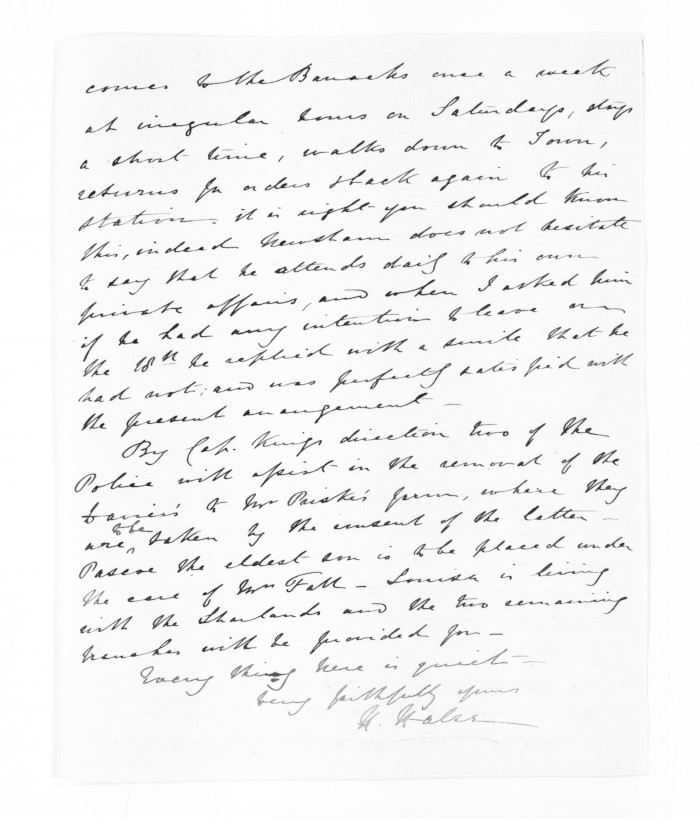 comes to the Barracks once a week
at irregular hours on Saturdays, stops
a short time, walks down to Town,
returns for orders & back again to his
station. it is right you should know
this, indeed Newsham does not hesitate
to say that he attends daily to his own
private affairs, and when I asked him
if he had any intention to leave on
the 18th he replied with a smile that he
had not; and was perfectly satisfied with
the present arrangement —
By Cap. Kings direction two of the
Police will assist in the removal of the
to Mr Priske's farm, where they
are to be taken by the consent of the latter —
Pascoe the eldest son is to be placed under
the care of Mrs — Louisa is living
with the Sharlands and the two remaining
branches will be provided for —
Every thing here is quiet —
Very faithfully yours
H. Halse